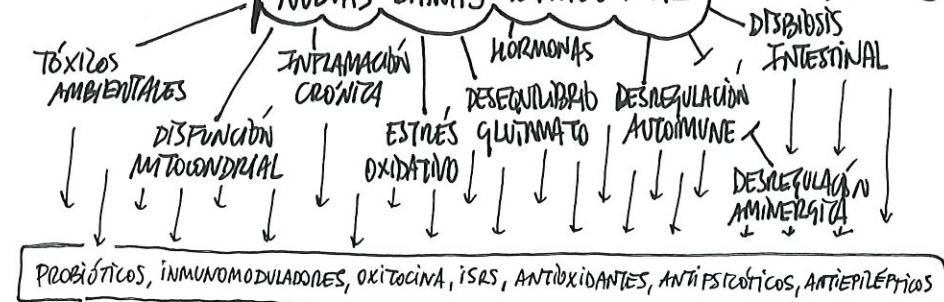 NUEVAS DIANAS
TÓXICOS
AMBIENTALES
DISFUNCIÓN
MITOCONDRIAL
INFLAMACIÓN
CRÓNICA
ESTRÉS
OXIDATIVO
HORMONAS
DESEQUILIBRIO
GLUTAMATO
DESREGULACIÓN
AUTOIMUNE
DISBIOSIS
INTESTINAL
DESREGULACIÓN
AMINERGICA
PROBIÓTICOS, INMUNOMODULADORES, OXITOCINA, ISRS, ANTIOXIDANTES, ANTIPSICÓTICOS, ANTIEPILÉPTICOS